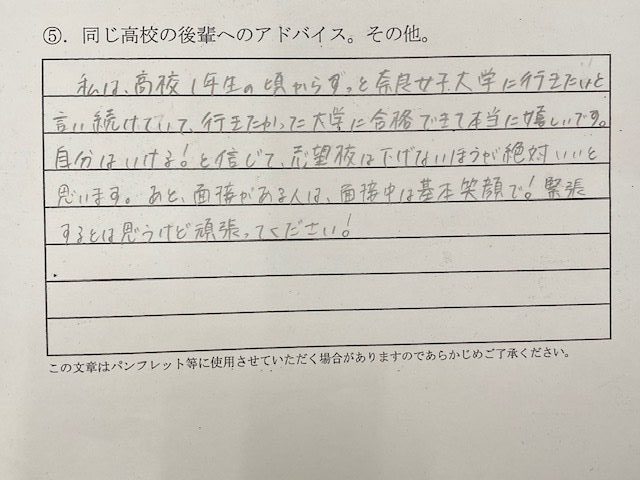 ⑤．同じ高校の後輩へのアドバイス。その他。
私は、高校1年生の頃からずっと奈良女子大学に行きたいと
言い続けていて、行きたかった大学に合格できて本当に嬉しいです。
自分はいける！と信じて、志望校は下げないほうが絶対いいと
思います。あと、面接がある人は、面接中は基本笑顔で！緊張
するとは思うけど頑張ってください！
この文章はパンフレット等に使用させていただく場合がありますのであらかじめご了承ください。